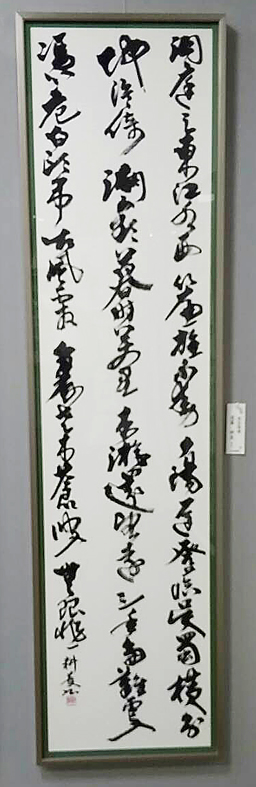 洞庭之東江水西簾旌不動夕陽遲登臨吳蜀橫分
地徙倚湖山欲暮時萬里來游還望遠三年多難更
憑危白頭弔古風霜裏老木蒼波無限悲